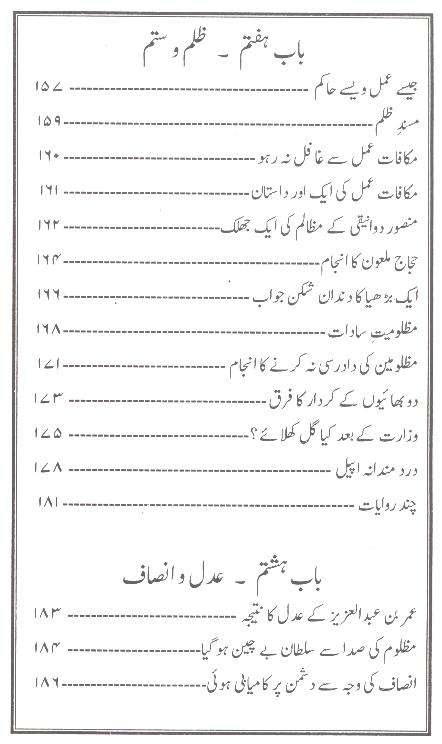 باب ہفتم ۔ ظلم و ستم
جیسے عمل ویسے حاکم ------ ۱۵۷
مسندِ ظلم ------ ۱۵۹
مکافات عمل سے غافل نہ رہو ------ ۱۶۰
مکافات عمل کی ایک اور داستان ------ ۱۶۱
منصور دوانیقی کے مظالم کی ایک جھلک ------ ۱۶۲
حجاج ملعون کا انجام ------ ۱۶۴
ایک بڑھیا کا دندان شکن جواب ------ ۱۶۶
مظلومیتِ سادات ------ ۱۶۸
مظلومین کی دادرسی نہ کرنے کا انجام ------ ۱۷۱
دو بھائیوں کے کردار کا فرق ------ ۱۷۳
وزارت کے بعد کیا گل کھلائے؟ ------ ۱۷۵
درد مندانہ اپیل ------ ۱۷۸
چند روایات ------ ۱۸۱
باب ہشتم ۔ عدل و انصاف
عمر بن عبدالعزیز کے عدل کا نتیجہ ------ ۱۸۳
مظلوم کی صدا سے سلطان بے چین ہو گیا ------ ۱۸۴
انصاف کی وجہ سے دشمن پر کامیابی ہوئی ------ ۱۸۶